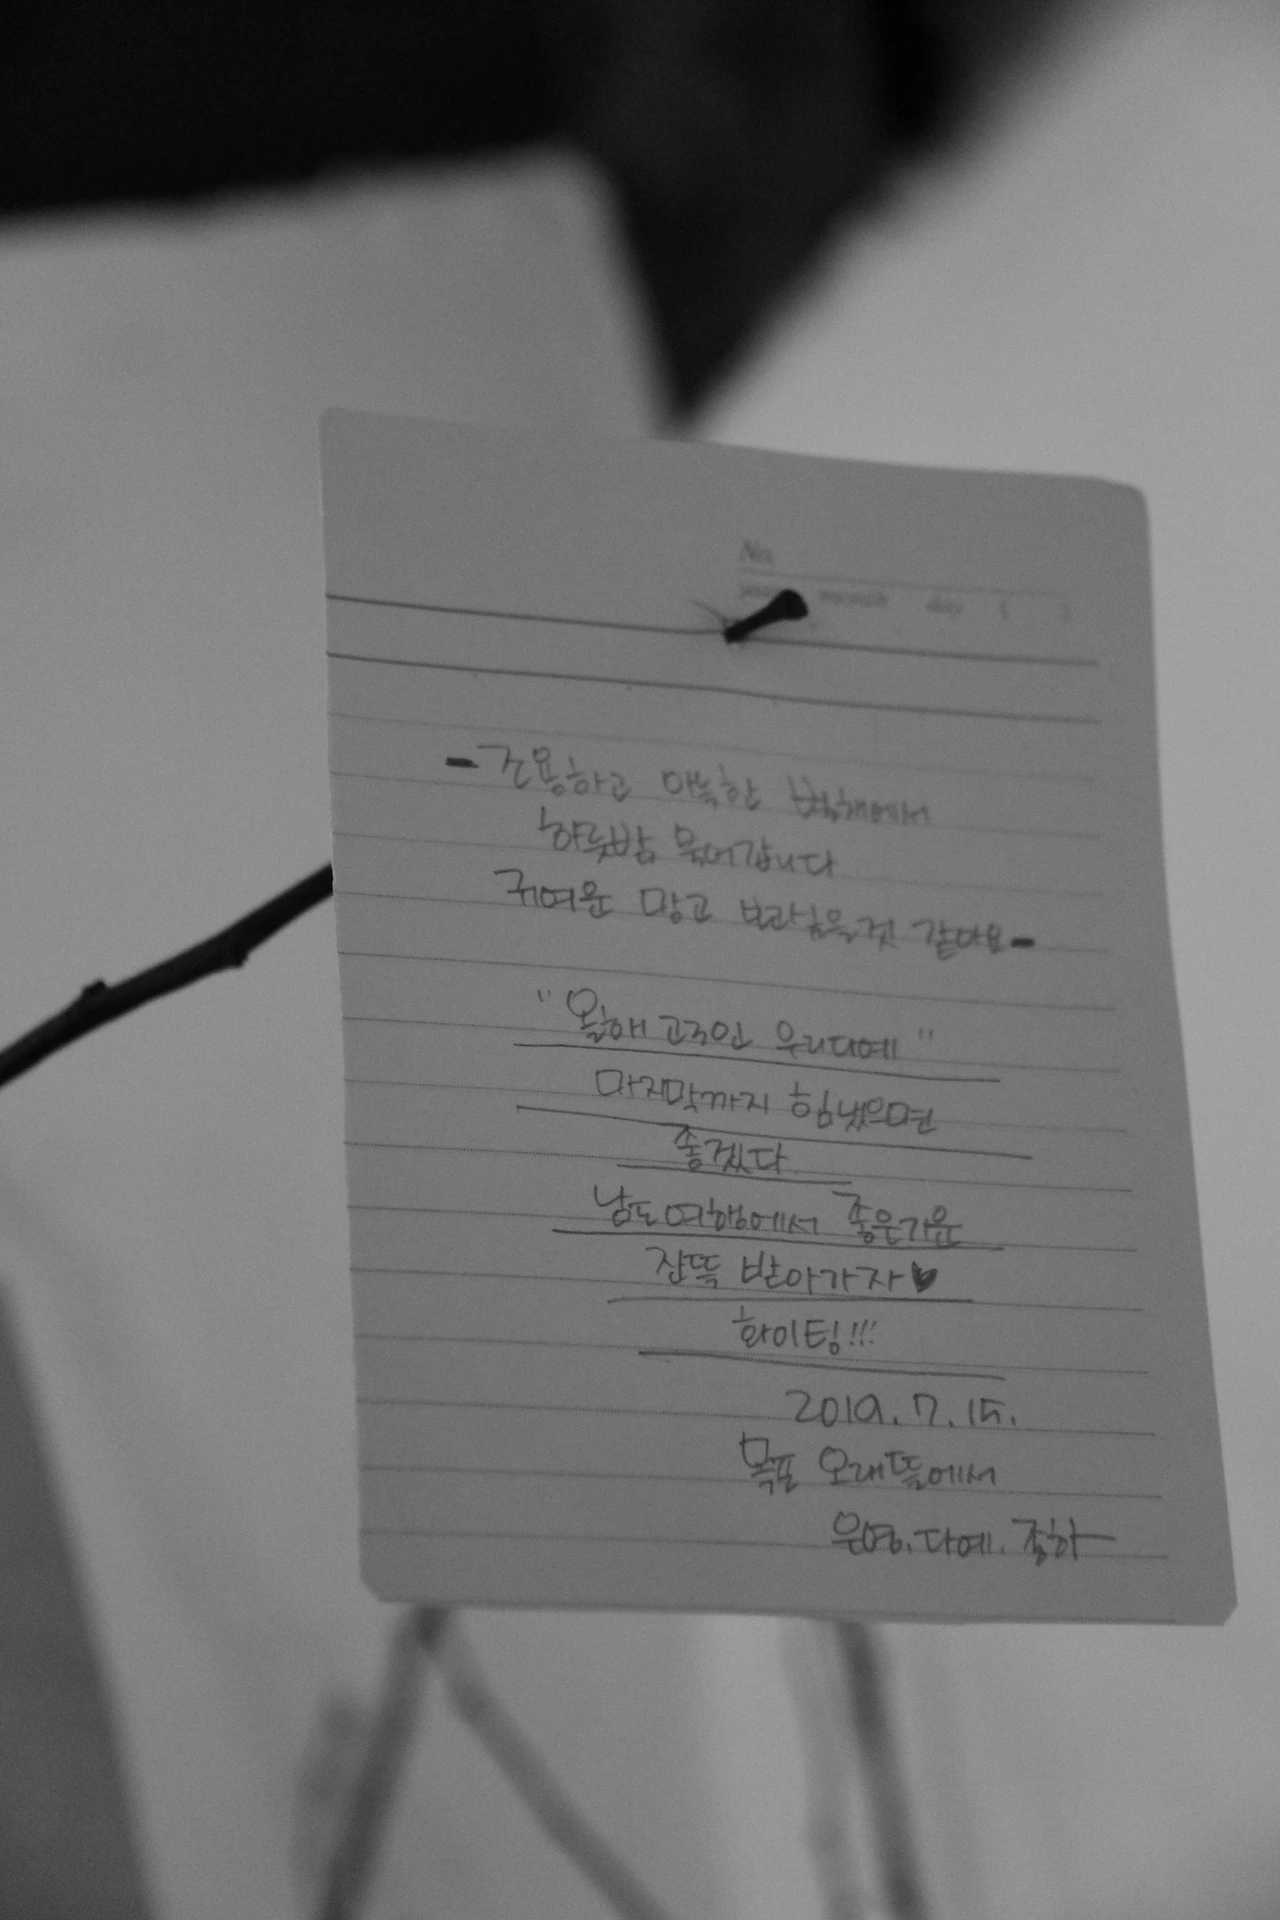 No.
year month day ( )
-조용하고 아늑한
하룻밤 묶어갑니다
귀여운 망고 보라 같아요-
"올해 고3인 우리다예"
마지막까지 힘냈으면
좋겠다
남도여행에서 좋은기운
잔뜩 받아가자♥
화이팅!!!
2019. 7. 15.
목포 오래뜰에서
은영. 다예.